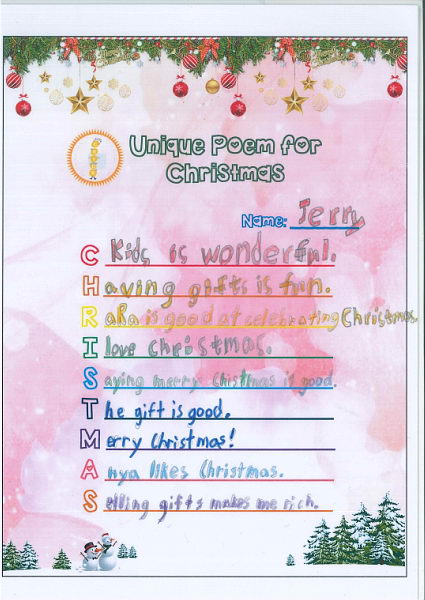 Unique Poem for
Christmas
Name: Jerry
C Kids is wonderful.
Having gifts is fun.
RaRa is good at celebrating Christmas.
I love christmas.
Saying merry Chistmas is good.
The gift is good.
Merry Christmas!
Anya likes Christmas.
Selling gifts makes me rich.